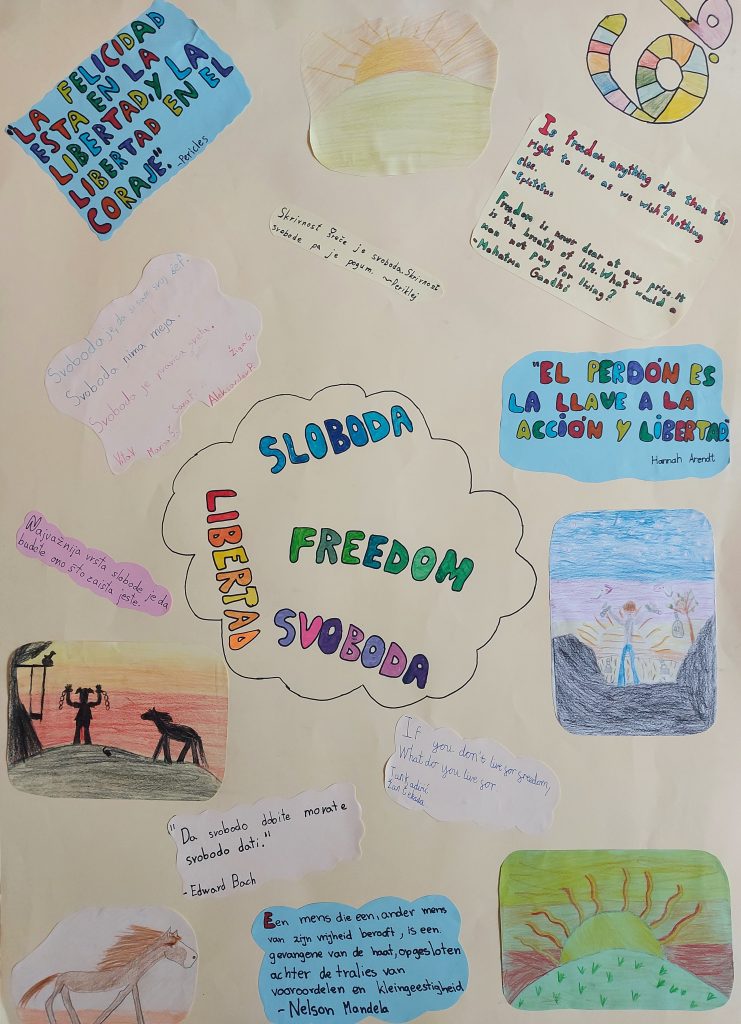 "LA FELICIDAD
ESTA EN LA
LIBERTAD, Y LA
LIBERTAD EN EL
CORAJE".
-Pericles
6.b
Is freedom anything else than the
right to live as we wish? Nothing
else.
-Epictetus
Freedom is never dear at any price. It
is the breath of life. What would a
man not pay for living?
-Mahatma Gandhi
Skrivnost Sreče je svoboda. Skrivnost
svobode pa je pogum. ~Periklej
Svoboda je, da si sam svoj šef.
Svoboda nima meja.
Svoboda je pravica sveta.
Žiga G.
Aleksander P.
Sara F.
Marsa Š
Vita V
"EL PERDÓN ES
LA LLAVE A LA
ACCIÓN Y LIBERTAD."
Hannah Arendt
SLOBODA
LIBERTAD
FREEDOM
SVOBODA
Najvažnija vrsta slobode je da
budete ono što zaista jeste.
If you don't live for freedom,
What do you live for.
"Da svobodo dobite morate
svobodo dati."
-Edward Bach
Een mens die een, ander mens
van zijn vrijheid berooft, is een
gevangene van de haat, opgesloten
achter de tralies van
vooroordelen en kleingeestigheid
- Nelson Mandela